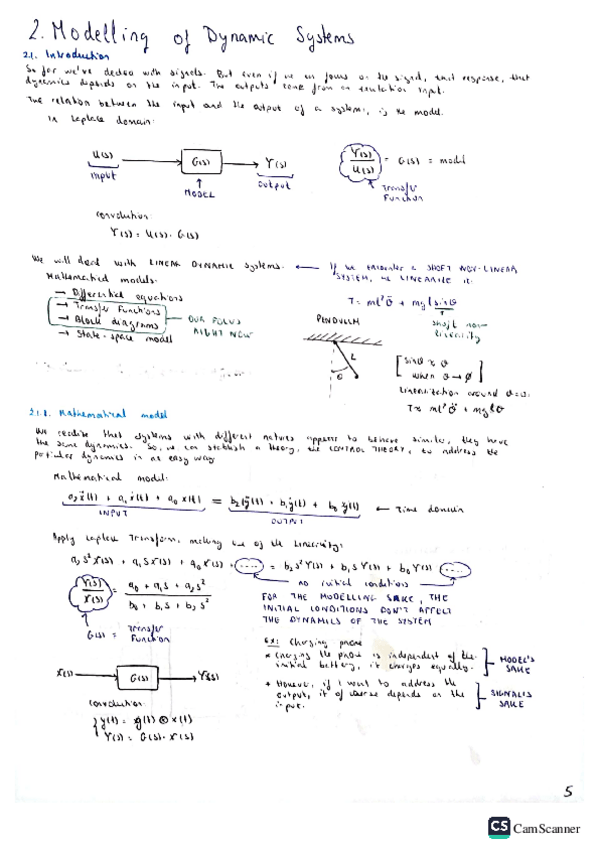 2. Modelling of Dynamic Systems
2.1. Introduction
So far we've dealed with signals. But even if we focus on the signal, that response, that
dynamics depends on the input. The outputs come from an excitation input.
The relation between the input and the output of a system, is the model.
In Laplace domain:
U(s) G(s) Y(s)
Input MODEL Output
Y(s)/U(s) = G(s) = model
Transfer Function
convolution:
Y(s) = U(s) · G(s)
We will deal with LINEAR DYNAMIC systems. ← If we encounter a SHOFT NON-LINEAR
SYSTEM, we LINEARIZE it.
Mathematical models:
→ Differential equations
→ Transfer Functions
→ Block diagrams
OUR FOCUS
RIGHT NOW
→ State-space model
T = ml²θ̈ + mgl sinθ
shoft non-
linearity
PENDULUM
L
θ
[sinθ ≈ θ
when θ → ∅]
Linearization around θ=0:
T ≈ ml²θ̈ + mglθ
2.1.1. Mathematical model
We realize that systems with different natures appear to behave similar, they have
the same dynamics. So, we can stablish a theory, the CONTROL THEORY, to address the
particular dynamics in an easy way.
Mathematical model:
a₂ẍ(t) + a₁ẋ(t) + a₀x(t) = b₂ÿ(t) + b₁ẏ(t) + b₀y(t) ← Time domain
INPUT OUTPUT
Apply Laplace Transform, making use of the linearity:
a₂s²X(s) + a₁sX(s) + a₀X(s) + (....) = b₂s²Y(s) + b₁sY(s) + b₀Y(s) (....)
no initial conditions
Y(s)/X(s) = (a₀ + a₁s + a₂s²)/(b₀ + b₁s + b₂s²)
G(s) = Transfer Function
FOR THE MODELLING SAKE, THE
INITIAL CONDITIONS DON'T AFFECT
THE DYNAMICS OF THE SYSTEM
Ex: Charging phone
* Charging the phone is independent of the
initial battery, it charges equally.
MODEL'S
SAKE
* However, if I want to address the
output, it of course depends on the
input.
SIGNAL'S
SAKE
X(s) G(s) Y(s)
convolution:
y(t) = g(t) ⊗ x(t)
Y(s) = G(s) · X(s)
5
CS CamScanner